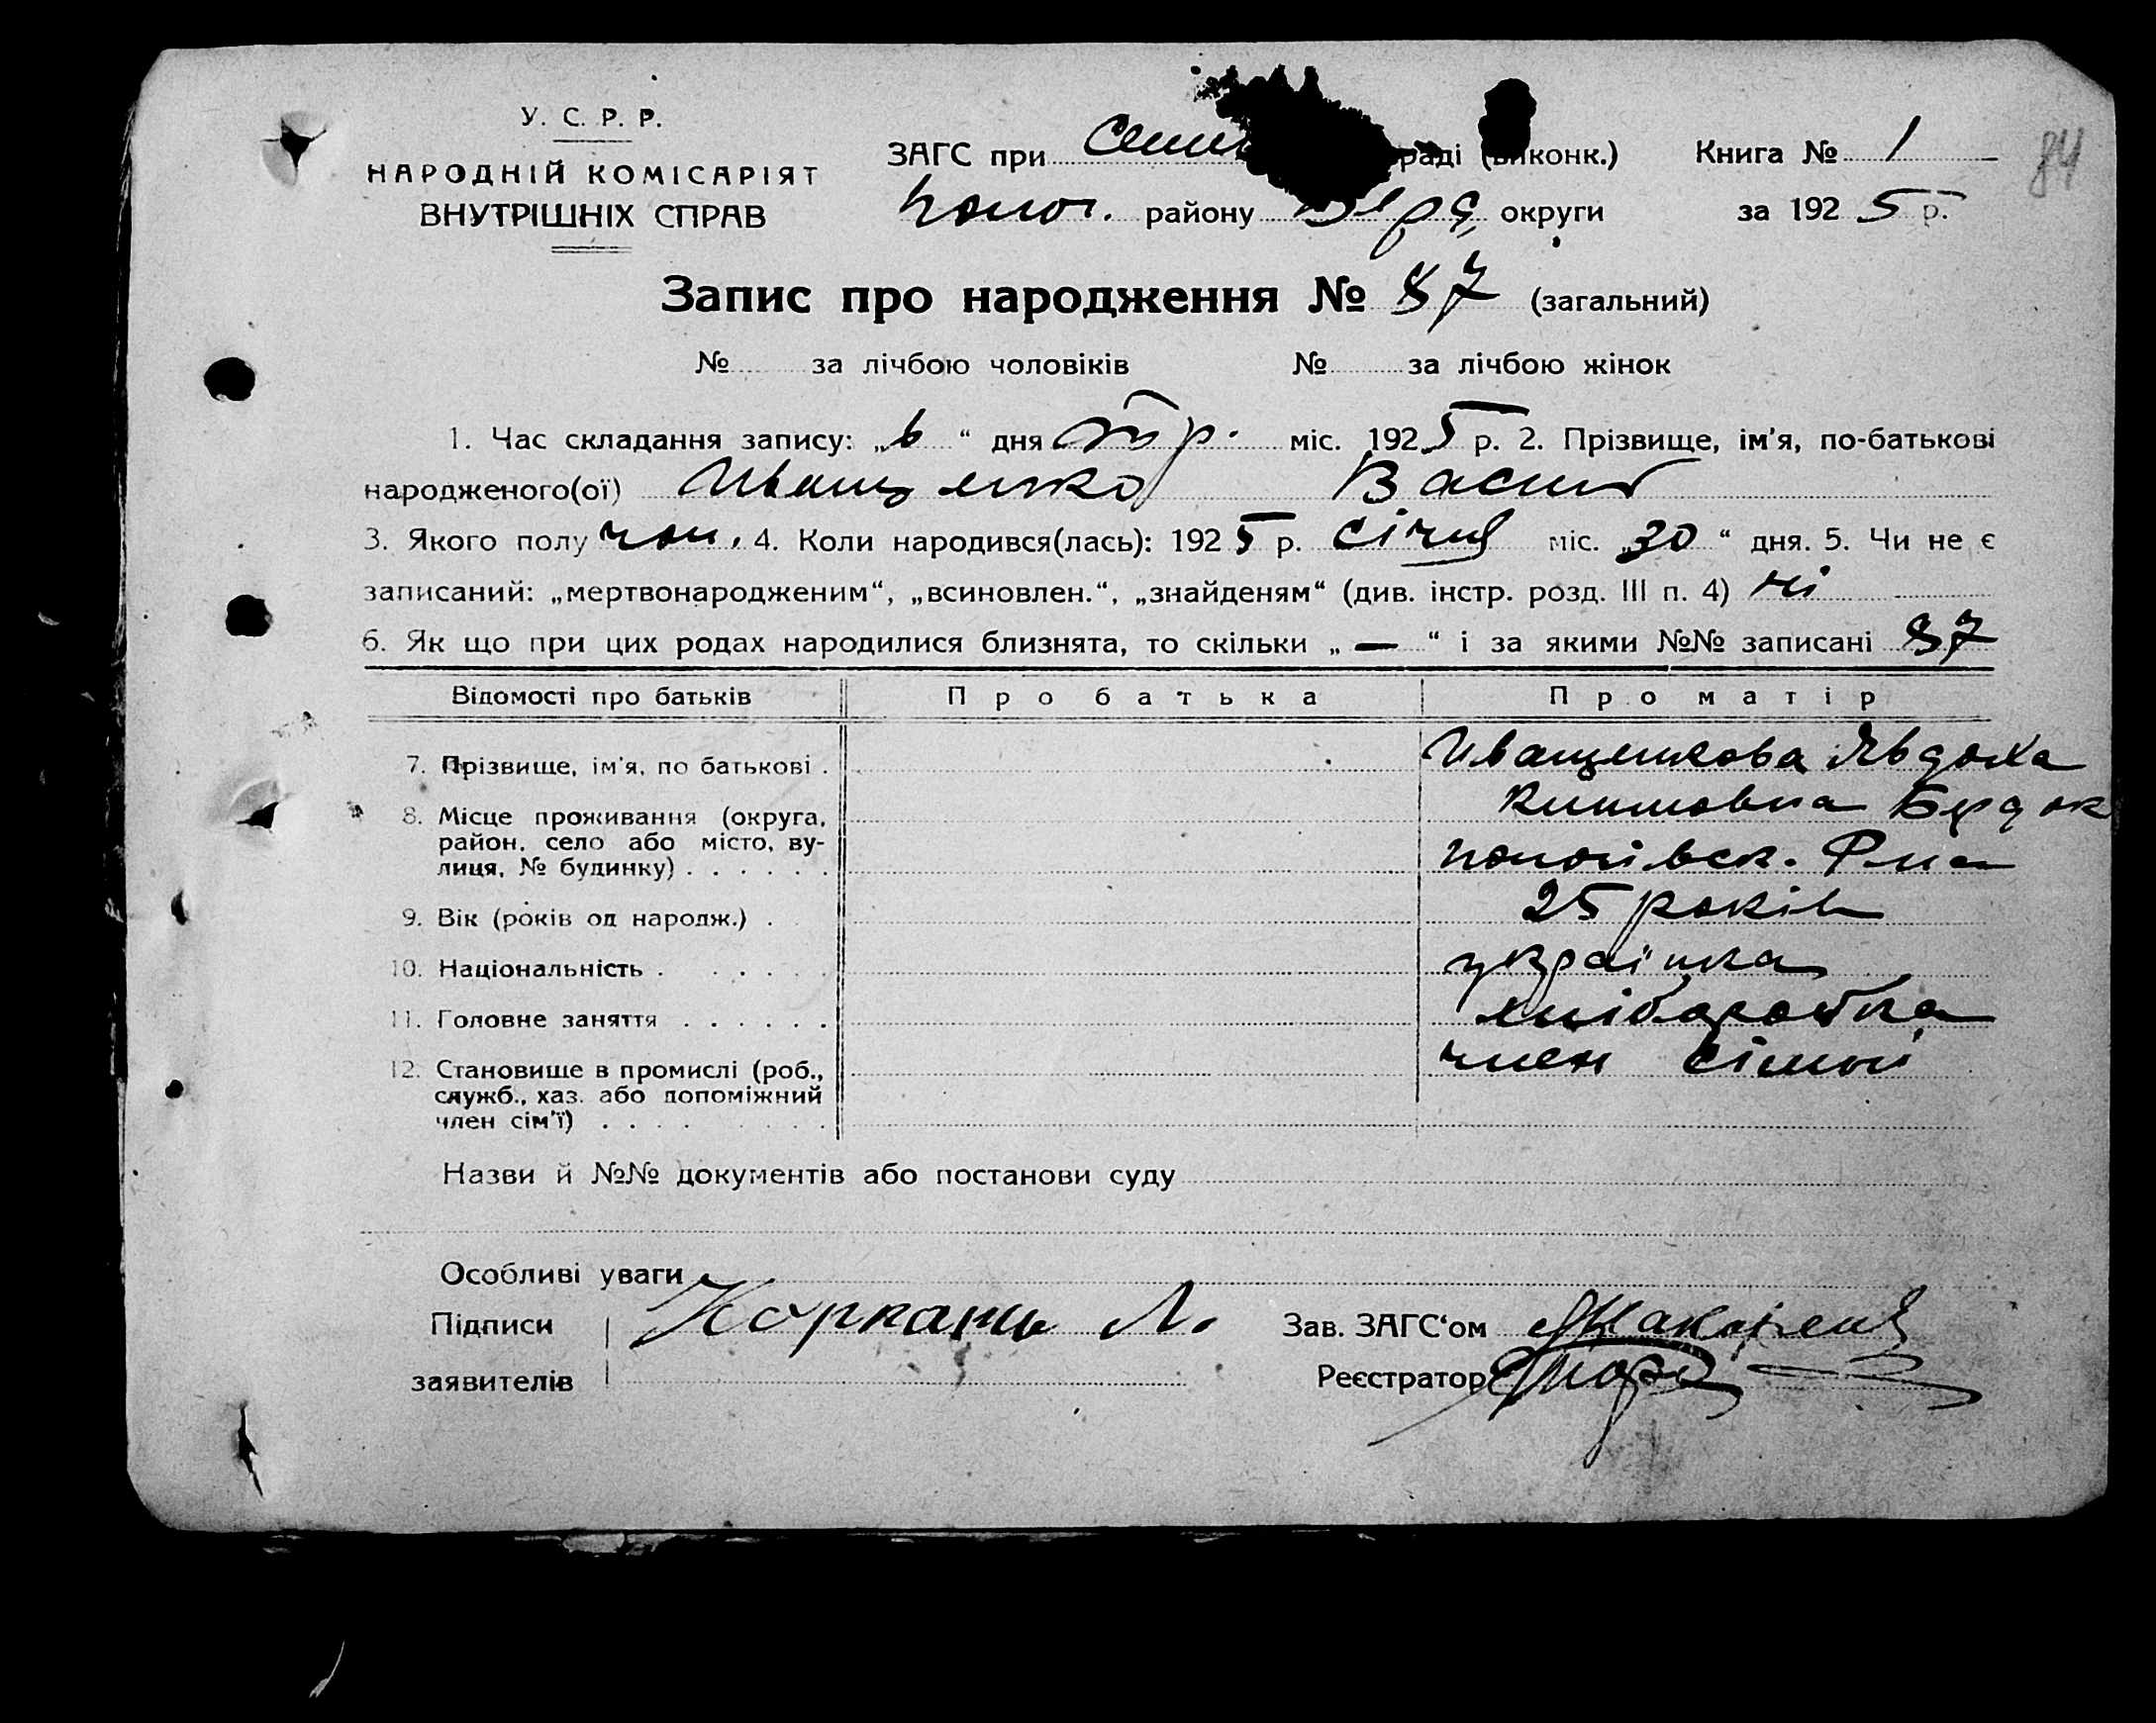 У. С. Р. Р.
НАРОДНІЙ КОМІСАРІЯТ
ВНУТРІШНІХ СПРАВ
ЗАГС при раді (виконк.)
Полог. району Бердя, округи
Книга № 1
за 1925 р.
84
Запис про народження № 87 (загальний)
№ за лічбою чоловіків № за лічбою жінок
1. Час складання запису: „6“ дня міс. 1925 р. 2. Прізвище, ім'я, по-батькові
народженого(ої) Иващенко Васил
3. Якого полу чол. 4. Коли народився(лась): 1925 р. січня міс. „30“ дня. 5. Чи не є
записаний: „мертвонародженим“, „всиновлен.“, „знайденям“ (див. інстр. розд. III п. 4) ні
6. Як що при цих родах народилися близнята, то скільки „—“ і за якими №№ записані 87
Відомості про батьків Про батька Про матір
7. Прізвище, ім'я, по батькові . Иващенкова Явдоха
8. Місце проживання (округа, район, село або місто, вулиця, № будинку) . . . . . .
Пологівск. Р-на
9. Вік (років од народж.) . 25 років
10. Національність . . . . . українка
11. Головне заняття . . . . . . хліборобка
12. Становище в промислі (роб., служб., хаз. або допоміжний член сім'ї) . . . . . . . . член сімьи
Назви й №№ документів або постанови суду
Особливі уваги
Підписи
заявителів
Зав. ЗАГС'ом
Реєстратор